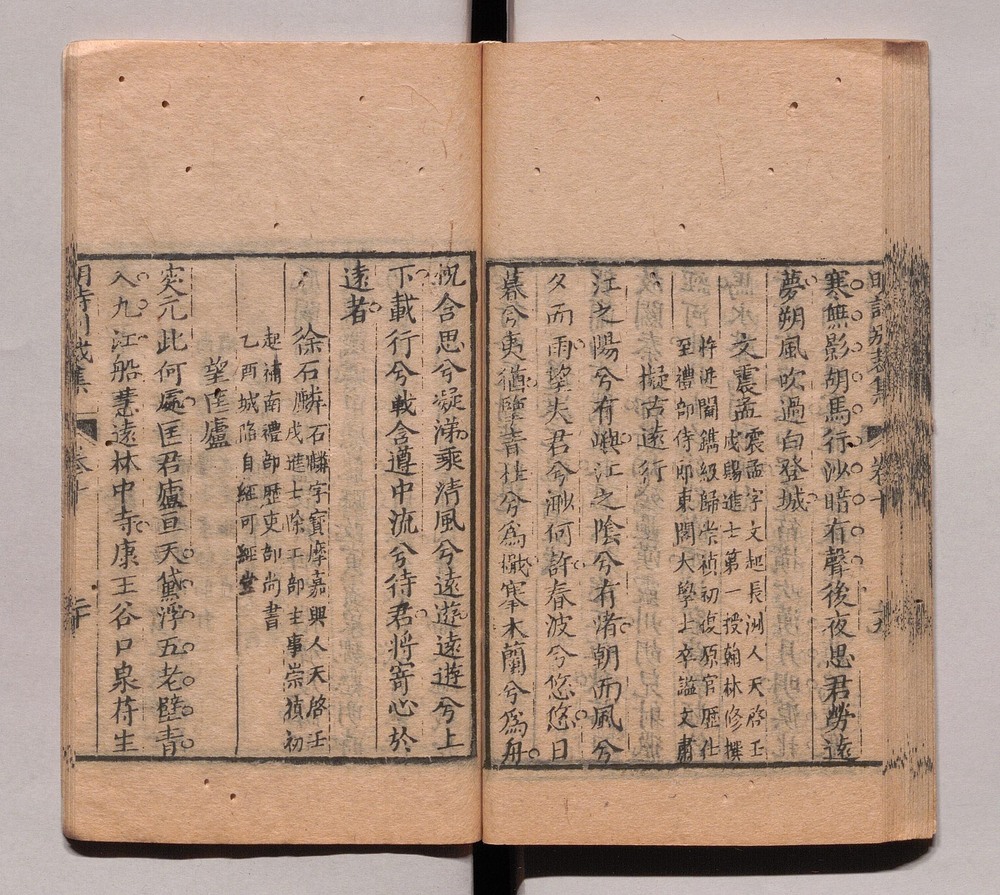 寒無影胡馬行沙暗有聲後夜思君勞遠
夢朔風吹過白登城
文震孟震孟字文起長洲人天啓壬
戌賜進士第一授翰林修撰
忤逆閹鐫級歸崇禎初復原官歷仕
至禮部侍郎東閣大學士卒諡文肅
擬古遠行
江之陽兮有嶼江之陰兮有渚朝而風兮
夕而雨望夫君兮渺何許春波兮悠悠日
暮兮夷猶墜青桂兮為檝搴木蘭兮為舟
祝含思兮凝涕乘清風兮遠遊遠遊兮上
下載行兮載含遵中流兮待君將寄心於
遠者
徐石麒石麟字寶摩嘉興人天啓壬
戌進士除工部主事崇禎初
起補南禮部歷吏部尚書
乙酉城陷自經可經堂
望匡廬
突兀此何處匡君廬亘天黛浮五老壁青
入九江船慧遠林中寺康王谷口泉待生
卷十
二十